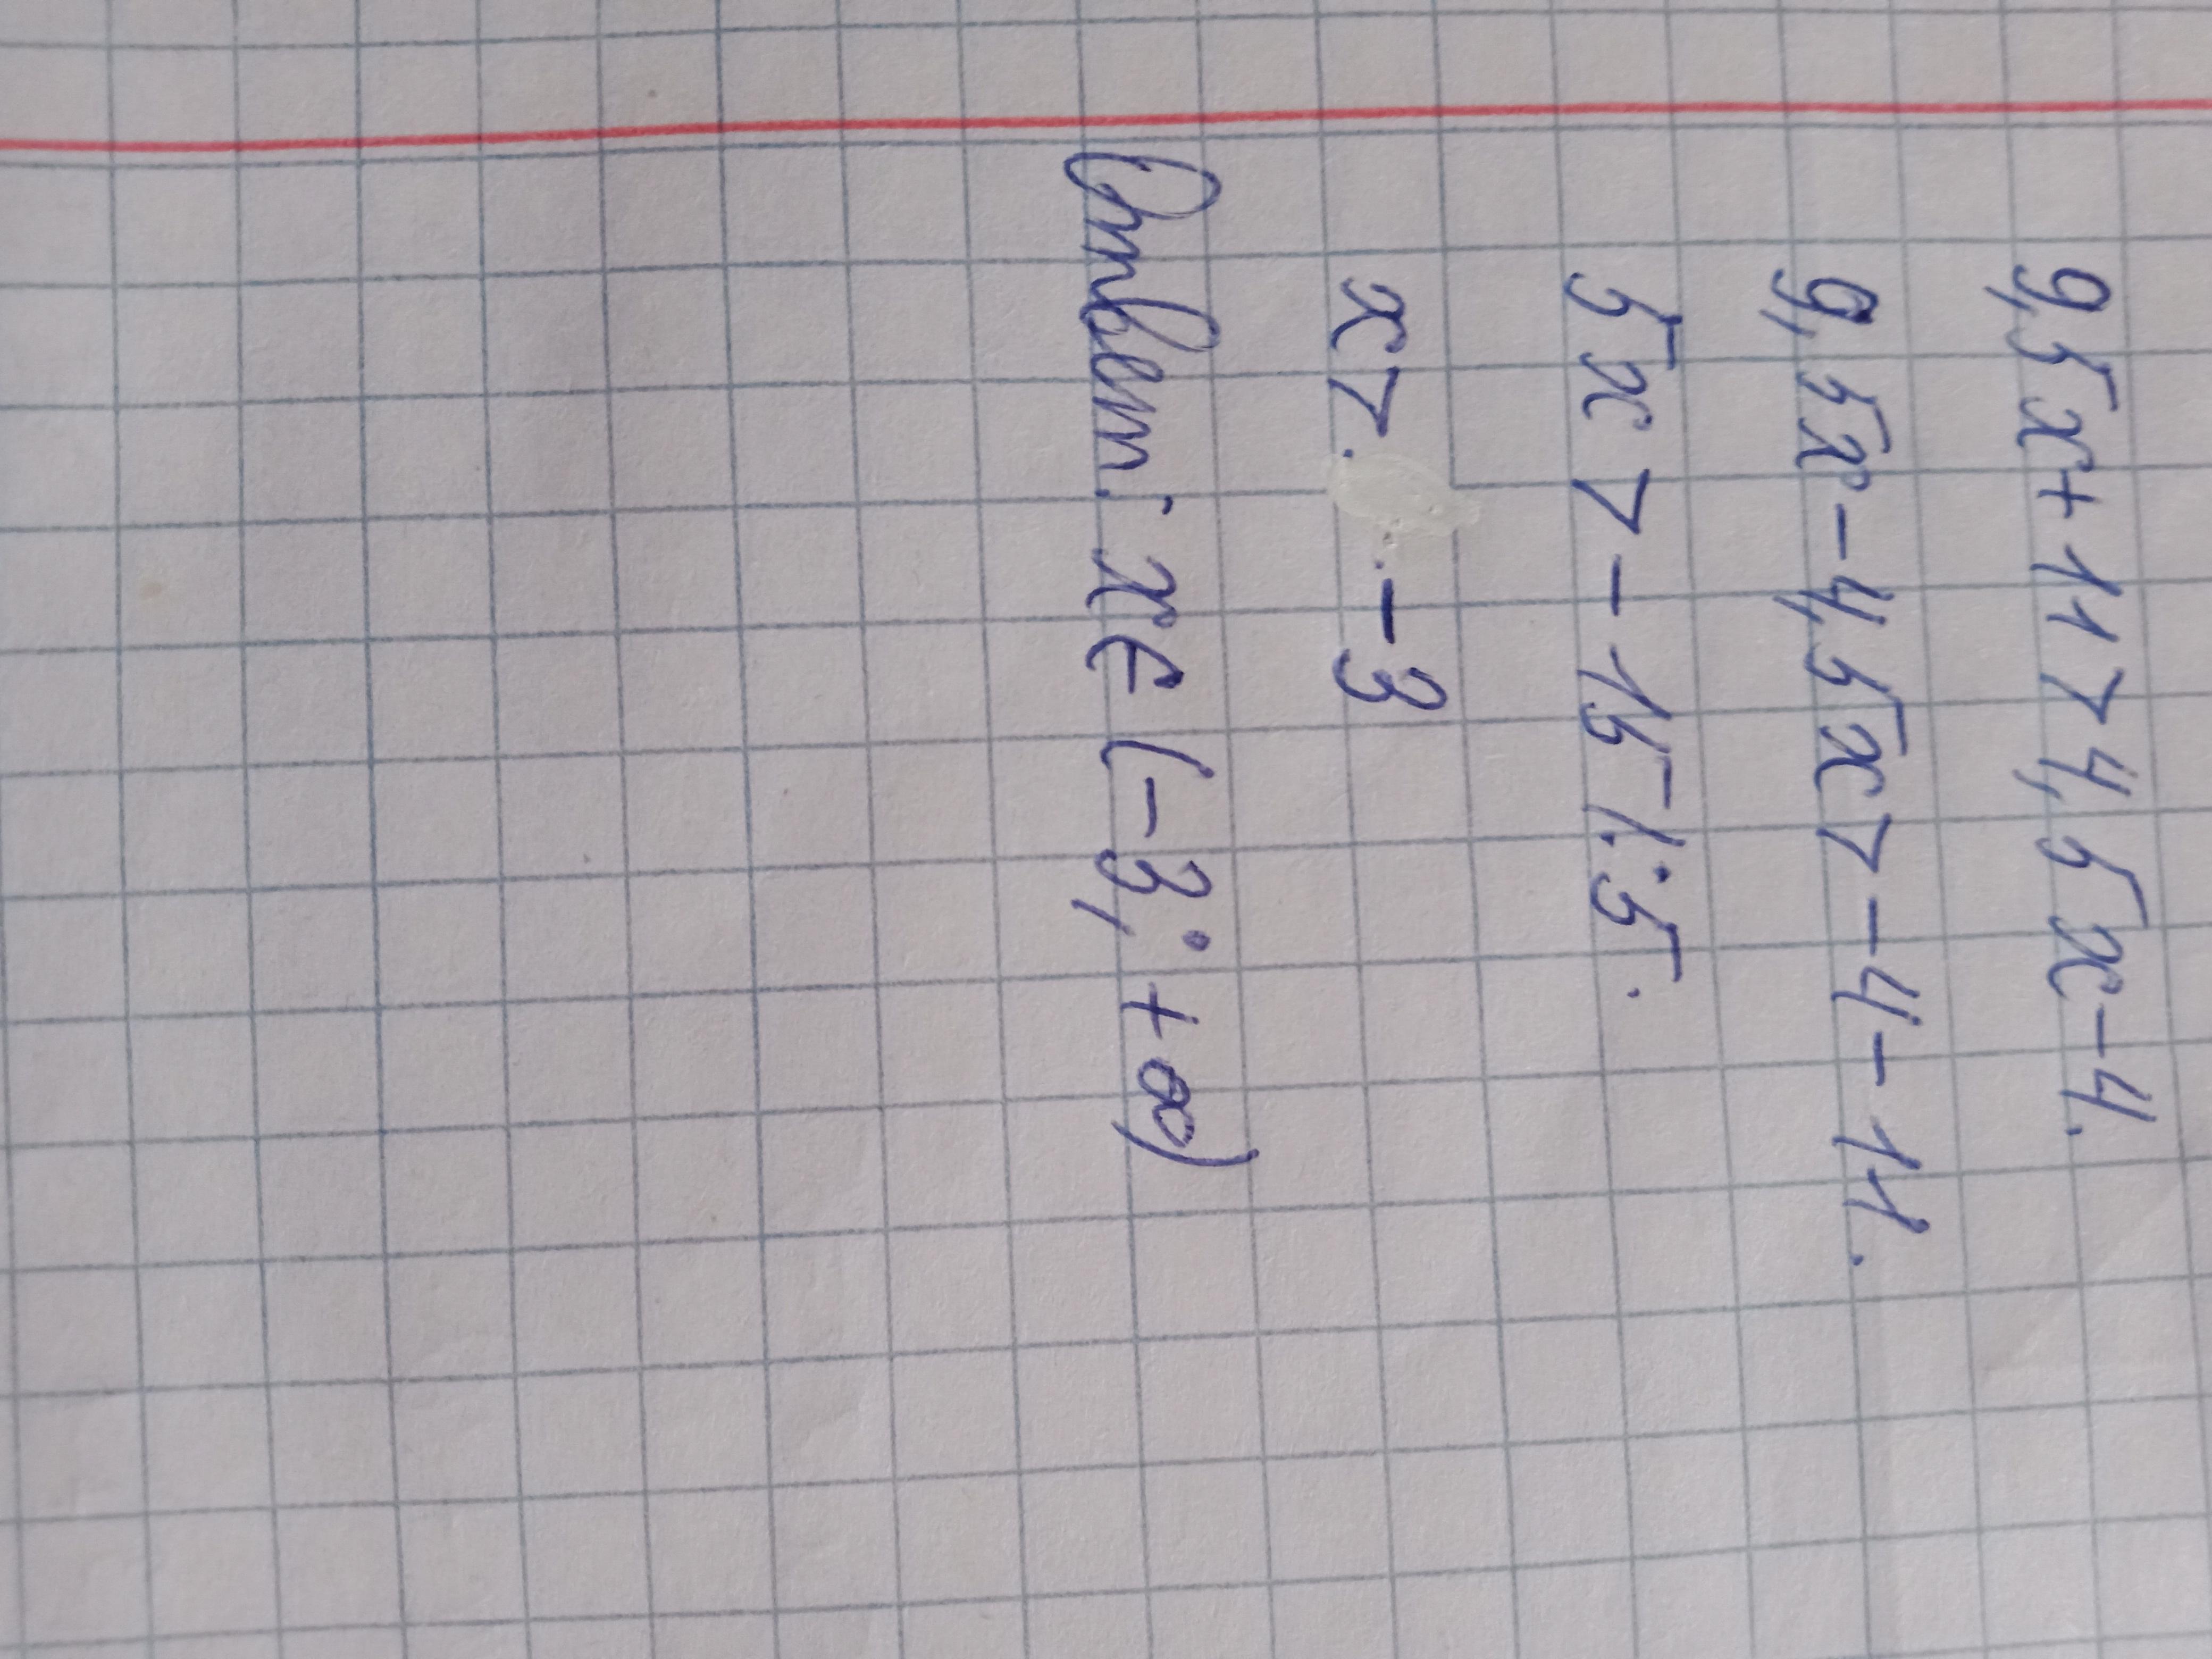 9,5x+11>4,5x-4.
9,5x-4,5x>-4-11.
5x>-15 |:5.
x>-3
Ответ: x∈(-3;+∞)